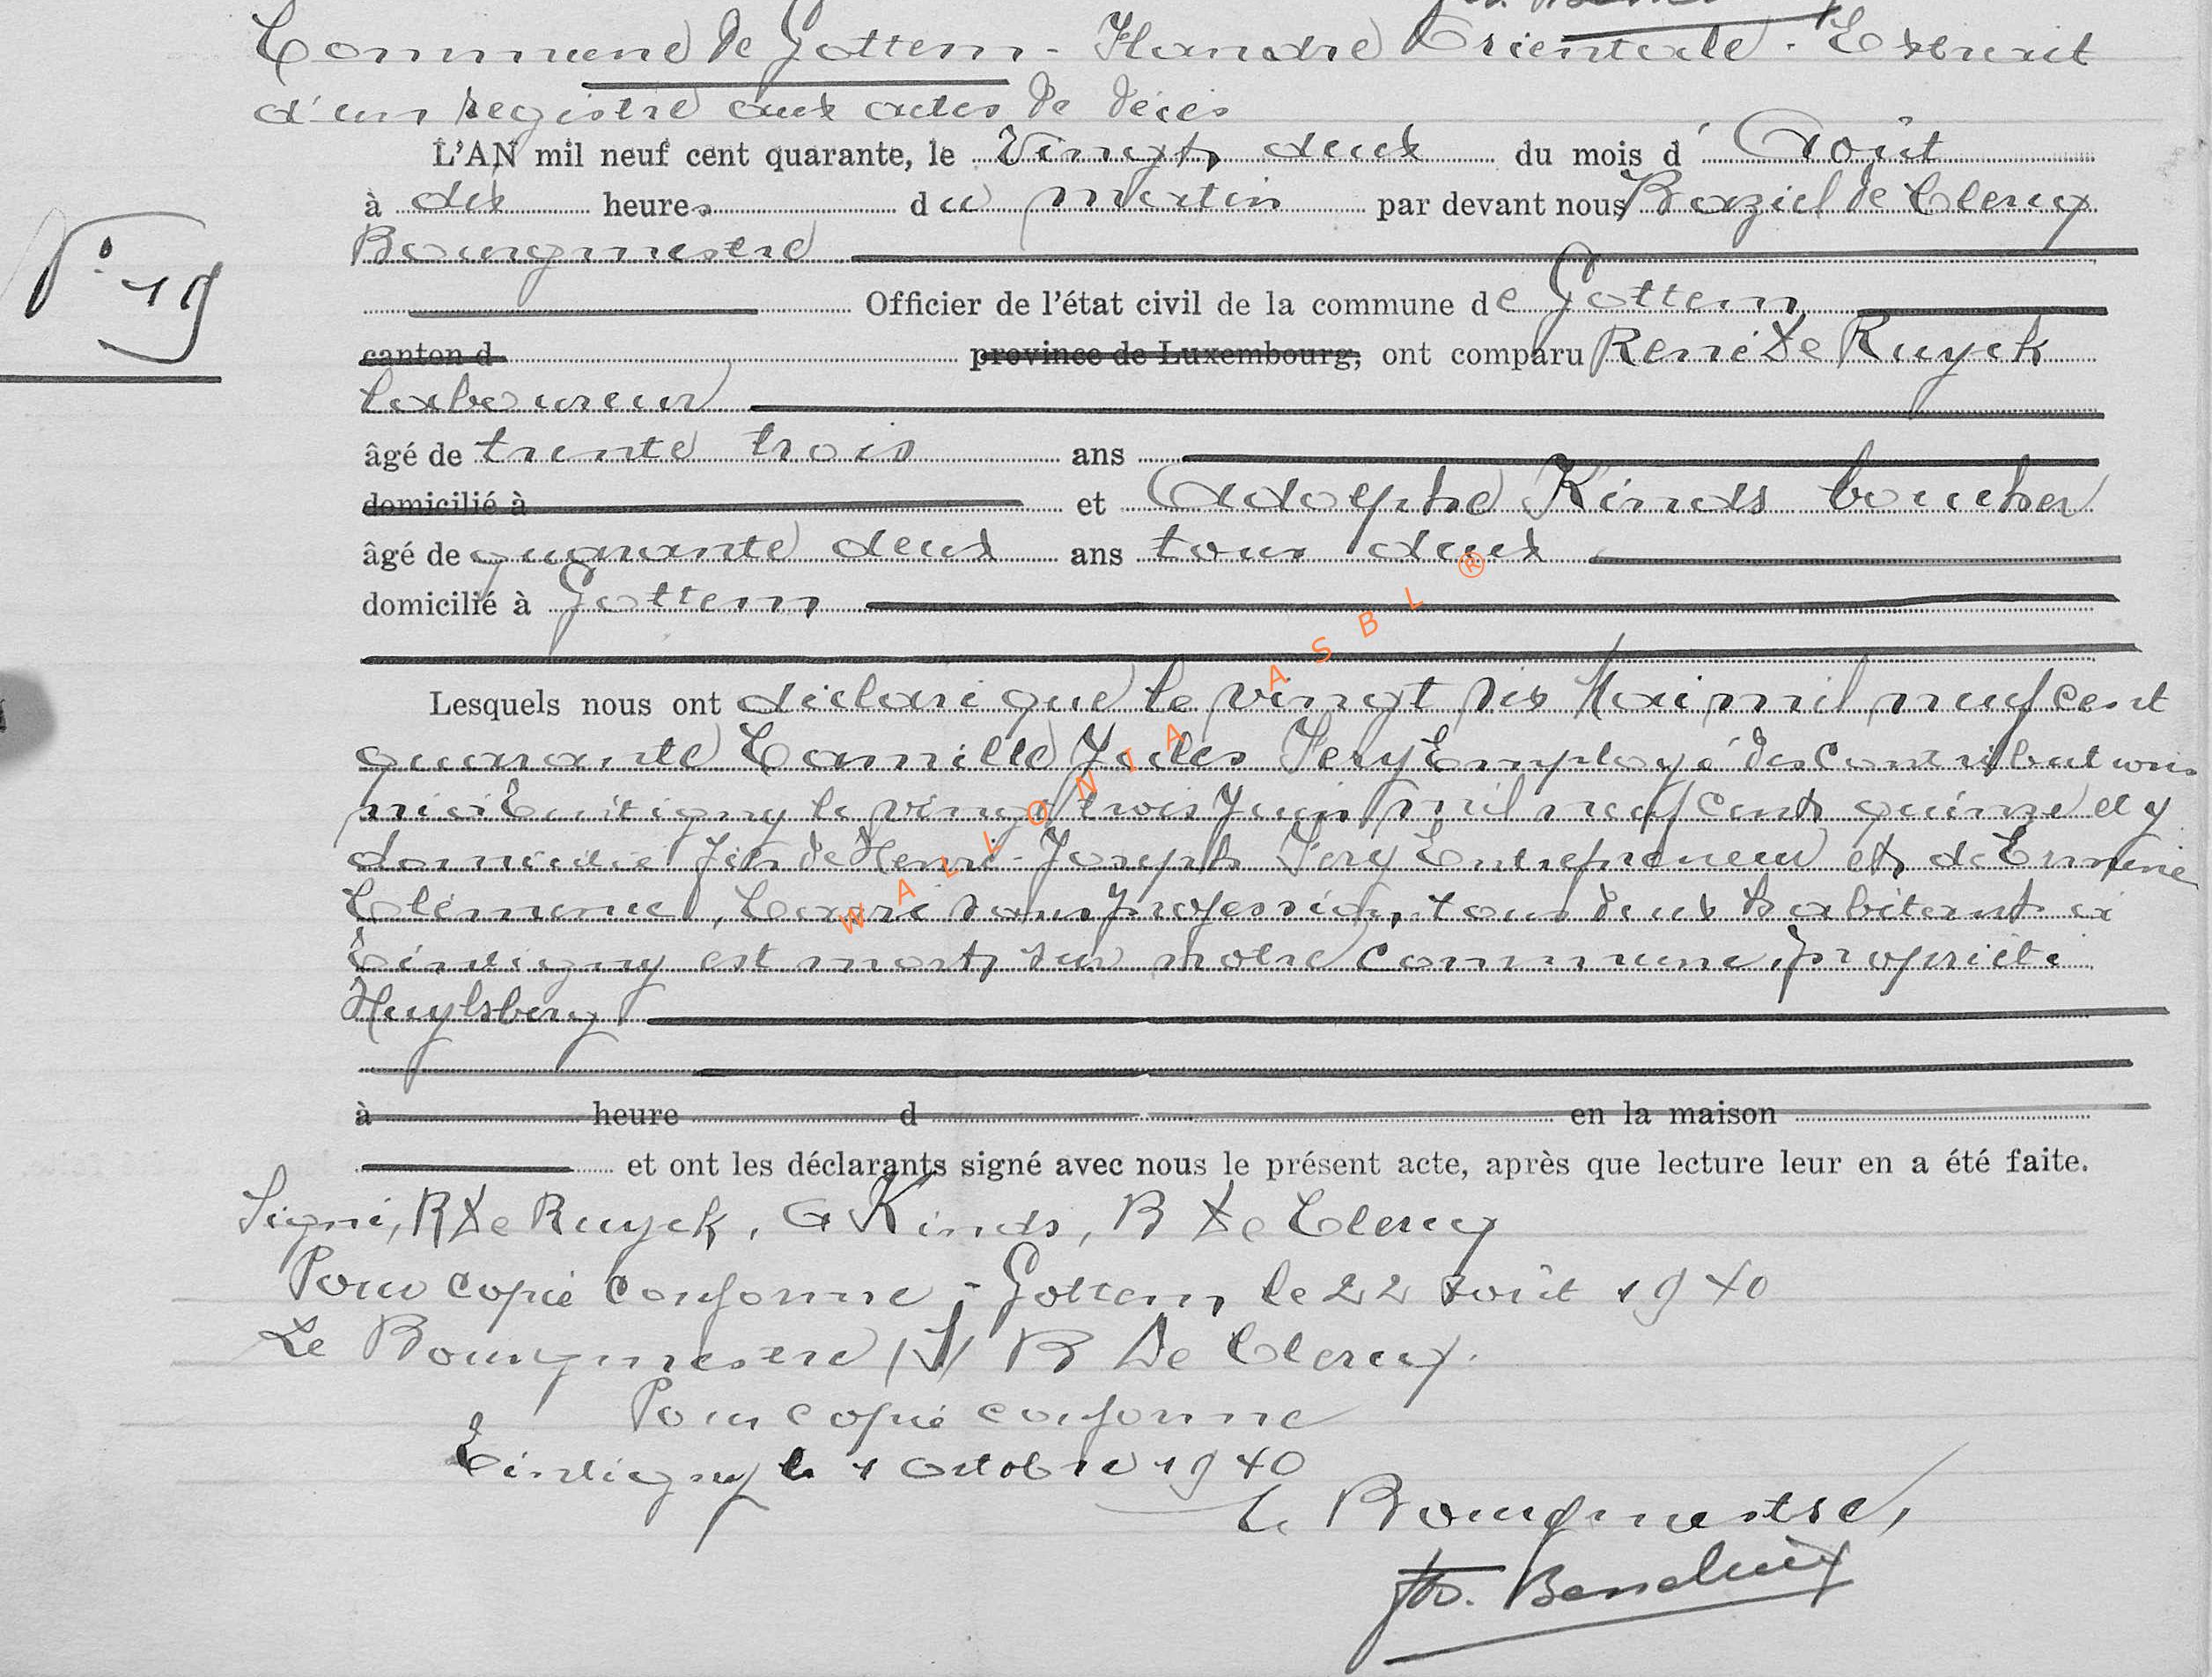 Commune de Gottem - Flandre Orientale. Extrait
d'un registre aux actes de décès
N° 19
L'AN mil neuf cent quarante, le vingt deux du mois d'Août
à dix heures du matin par devant nous Baziel de Clercq
Bourgmestre
Officier de l'état civil de la commune de Gottem
canton d province de Luxembourg, ont comparu René De Ruyck
laboureur
âgé de trente trois ans
domicilié à et Adolphe Kinds boucher
âgé de quarante deux ans tous deux
domicilié à Gottem
Lesquels nous ont déclaré que le vingt six Mai mil neuf cent
quarante Camille Jules Fery Employé des Contributions
né à Tintigny le vingt trois Juin mil neuf cent quinze et y
domicilié fils de Henri-Joseph Fery Entrepreneur et de
Clémence, sans profession, tous deux habitant à
Tintigny est mort sur notre Commune, propriété
à heure d en la maison
et ont les déclarants signé avec nous le présent acte, après que lecture leur en a été faite.
Signé, R De Ruyck, A Kinds, B De Clercq
Pour copie conforme - Gottem le 22 Août 1940
Le Bourgmestre (s) B De Clercq.
Pour copie conforme
Tintigny le 1 Octobre 1940
Le Bourgmestre,
WALLONIA ASBL ®